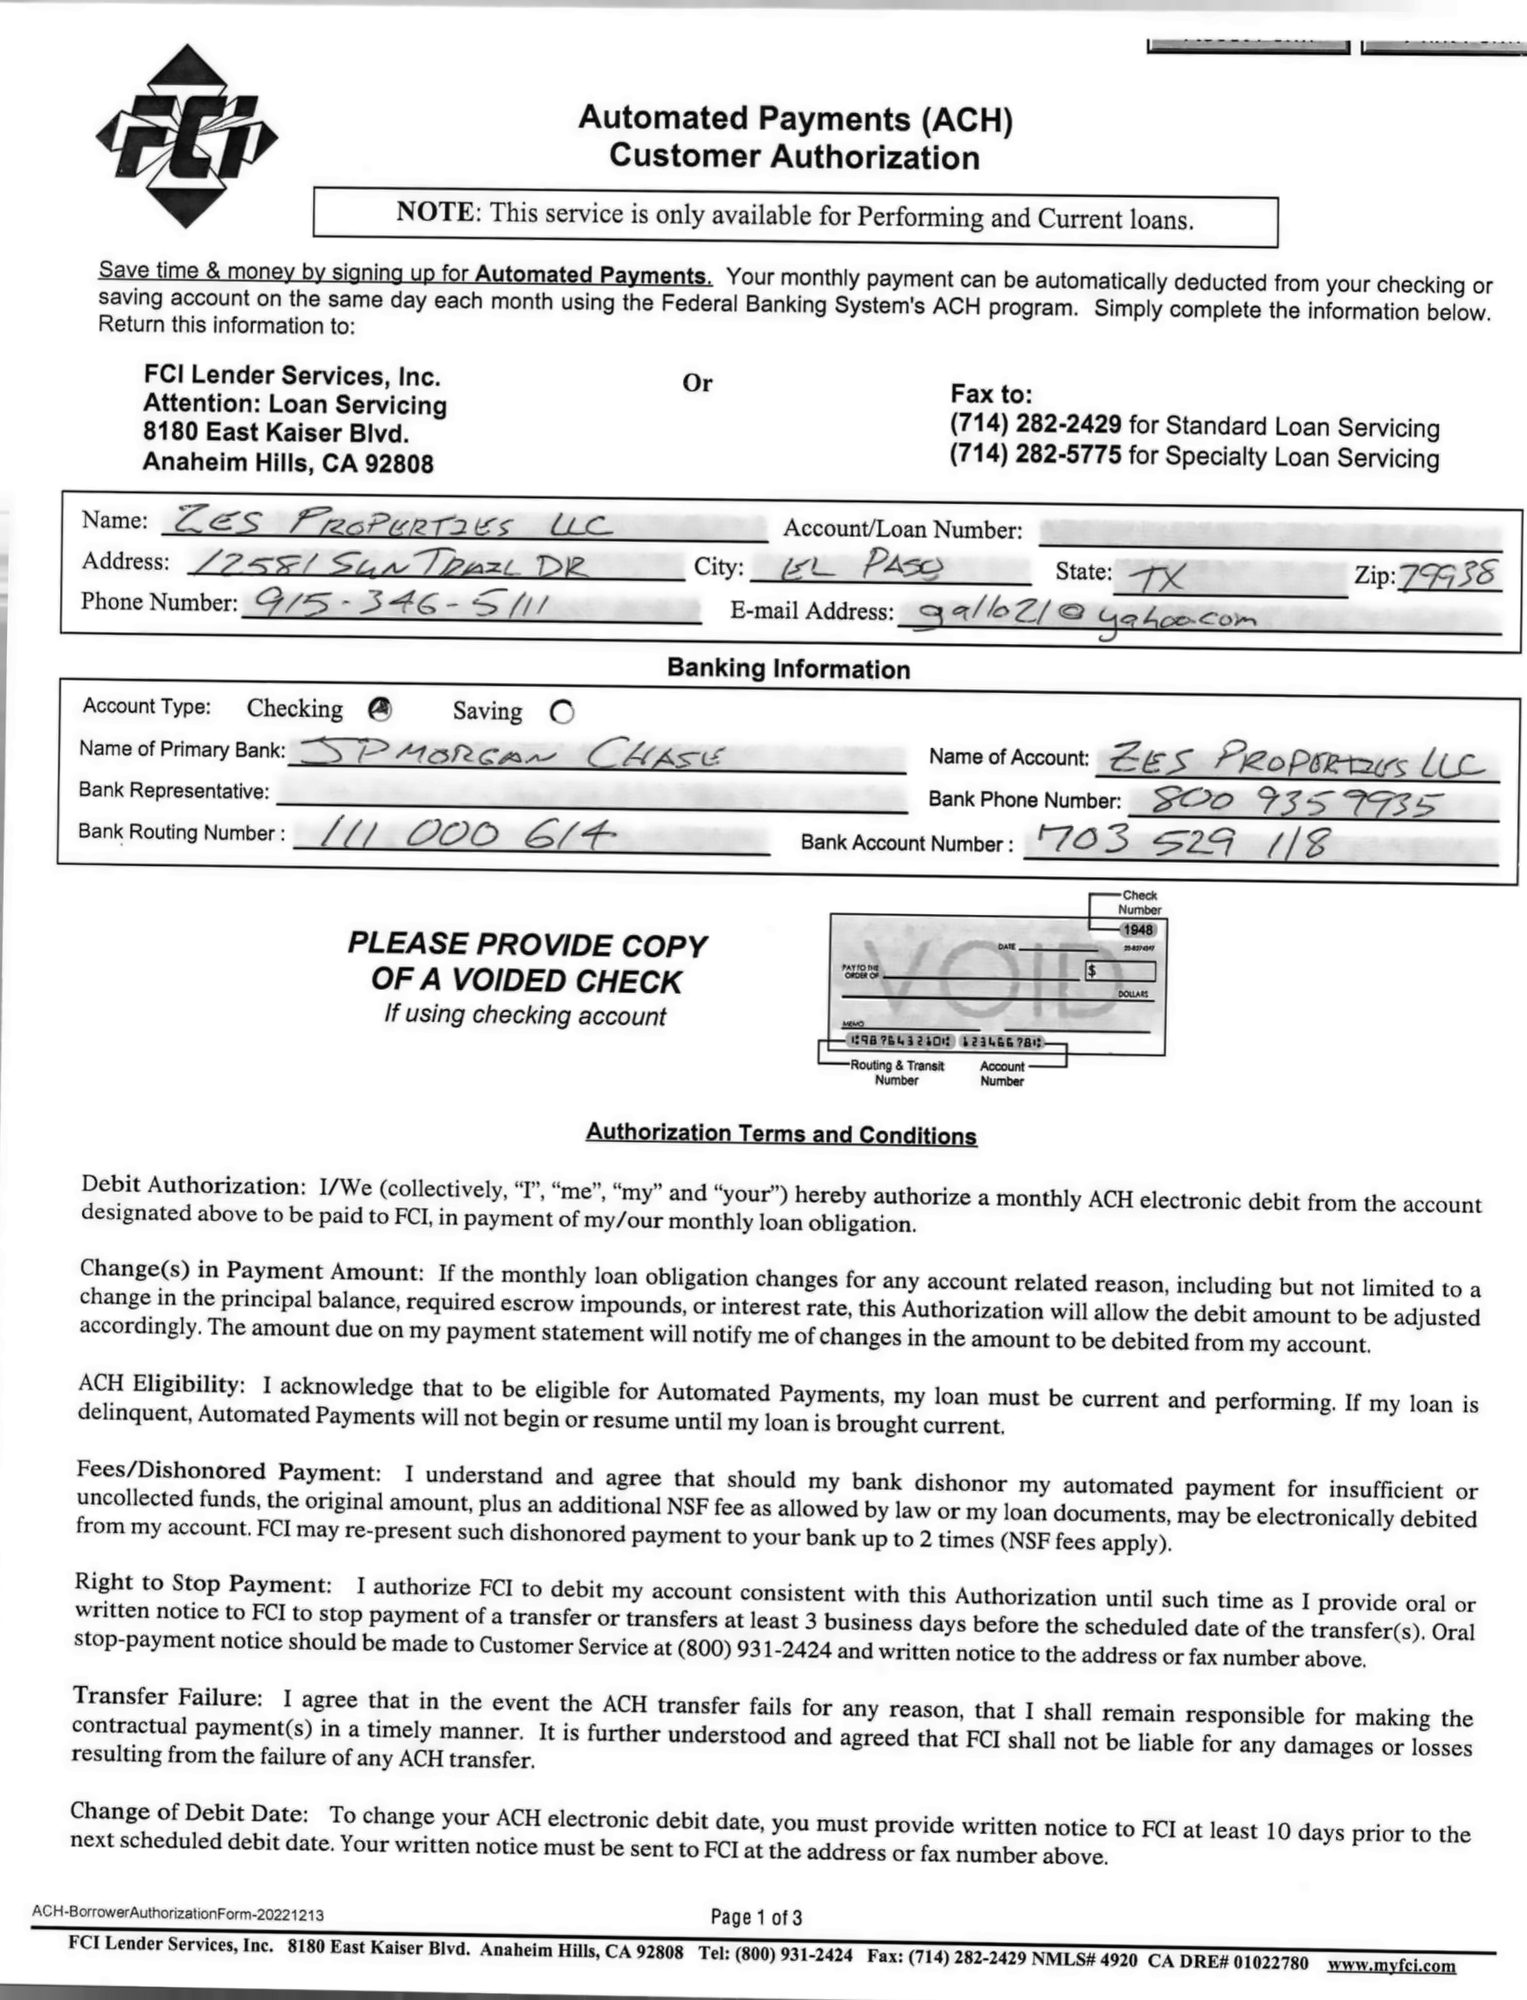 FCI
Automated Payments (ACH)
Customer Authorization
NOTE: This service is only available for Performing and Current loans.
Save time & money by signing up for Automated Payments. Your monthly payment can be automatically deducted from your checking or
saving account on the same day each month using the Federal Banking System's ACH program. Simply complete the information below.
Return this information to:
FCI Lender Services, Inc.
Attention: Loan Servicing
8180 East Kaiser Blvd.
Anaheim Hills, CA 92808
Or
Fax to:
(714) 282-2429 for Standard Loan Servicing
(714) 282-5775 for Specialty Loan Servicing
Name: ZES PROPERTIES LLC Account/Loan Number:
Address: 12581 SUN TRAIL DR City: EL PASO State: TX Zip: 79938
Phone Number: 915-346-5111 E-mail Address: gallo21@yahoo.com
Banking Information
Account Type: Checking Saving
Name of Primary Bank: JP MORGAN CHASE Name of Account: ZES PROPERTIES LLC
Bank Representative: Bank Phone Number: 800 935 9935
Bank Routing Number : 111 000 614 Bank Account Number : 703 529 118
PLEASE PROVIDE COPY
OF A VOIDED CHECK
If using checking account
Check
Number
1948
DATE
PAY TO THE
ORDER OF
$
VOID
DOLLARS
MEMO
Routing & Transit
Number
Account
Number
Authorization Terms and Conditions
Debit Authorization: I/We (collectively, “I”, “me”, “my” and “your”) hereby authorize a monthly ACH electronic debit from the account
designated above to be paid to FCI, in payment of my/our monthly loan obligation.
Change(s) in Payment Amount: If the monthly loan obligation changes for any account related reason, including but not limited to a
change in the principal balance, required escrow impounds, or interest rate, this Authorization will allow the debit amount to be adjusted
accordingly. The amount due on my payment statement will notify me of changes in the amount to be debited from my account.
ACH Eligibility: I acknowledge that to be eligible for Automated Payments, my loan must be current and performing. If my loan is
delinquent, Automated Payments will not begin or resume until my loan is brought current.
Fees/Dishonored Payment: I understand and agree that should my bank dishonor my automated payment for insufficient or
uncollected funds, the original amount, plus an additional NSF fee as allowed by law or my loan documents, may be electronically debited
from my account. FCI may re-present such dishonored payment to your bank up to 2 times (NSF fees apply).
Right to Stop Payment: I authorize FCI to debit my account consistent with this Authorization until such time as I provide oral or
written notice to FCI to stop payment of a transfer or transfers at least 3 business days before the scheduled date of the transfer(s). Oral
stop-payment notice should be made to Customer Service at (800) 931-2424 and written notice to the address or fax number above.
Transfer Failure: I agree that in the event the ACH transfer fails for any reason, that I shall remain responsible for making the
contractual payment(s) in a timely manner. It is further understood and agreed that FCI shall not be liable for any damages or losses
resulting from the failure of any ACH transfer.
Change of Debit Date: To change your ACH electronic debit date, you must provide written notice to FCI at least 10 days prior to the
next scheduled debit date. Your written notice must be sent to FCI at the address or fax number above.
ACH-BorrowerAuthorizationForm-20221213
Page 1 of 3
FCI Lender Services, Inc. 8180 East Kaiser Blvd. Anaheim Hills, CA 92808 Tel: (800) 931-2424 Fax: (714) 282-2429 NMLS# 4920 CA DRE# 01022780 www.myfci.com